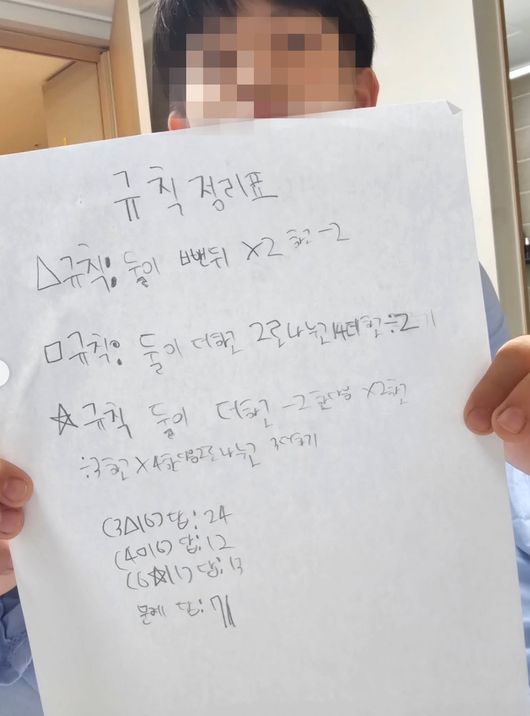 규칙정리표
△규칙: 둘이 뺀뒤 ×2 하고 -2
□규칙: 둘이 더하고 2로나누고 14더하고 ÷2
☆규칙 둘이 더하고 -2 한다음 ×2하고
÷3하고 ×4한다음 2로나누고 3더하기
(3△16) 답: 24
(4□16) 답: 12
(6☆11) 답: 13
문제 답: